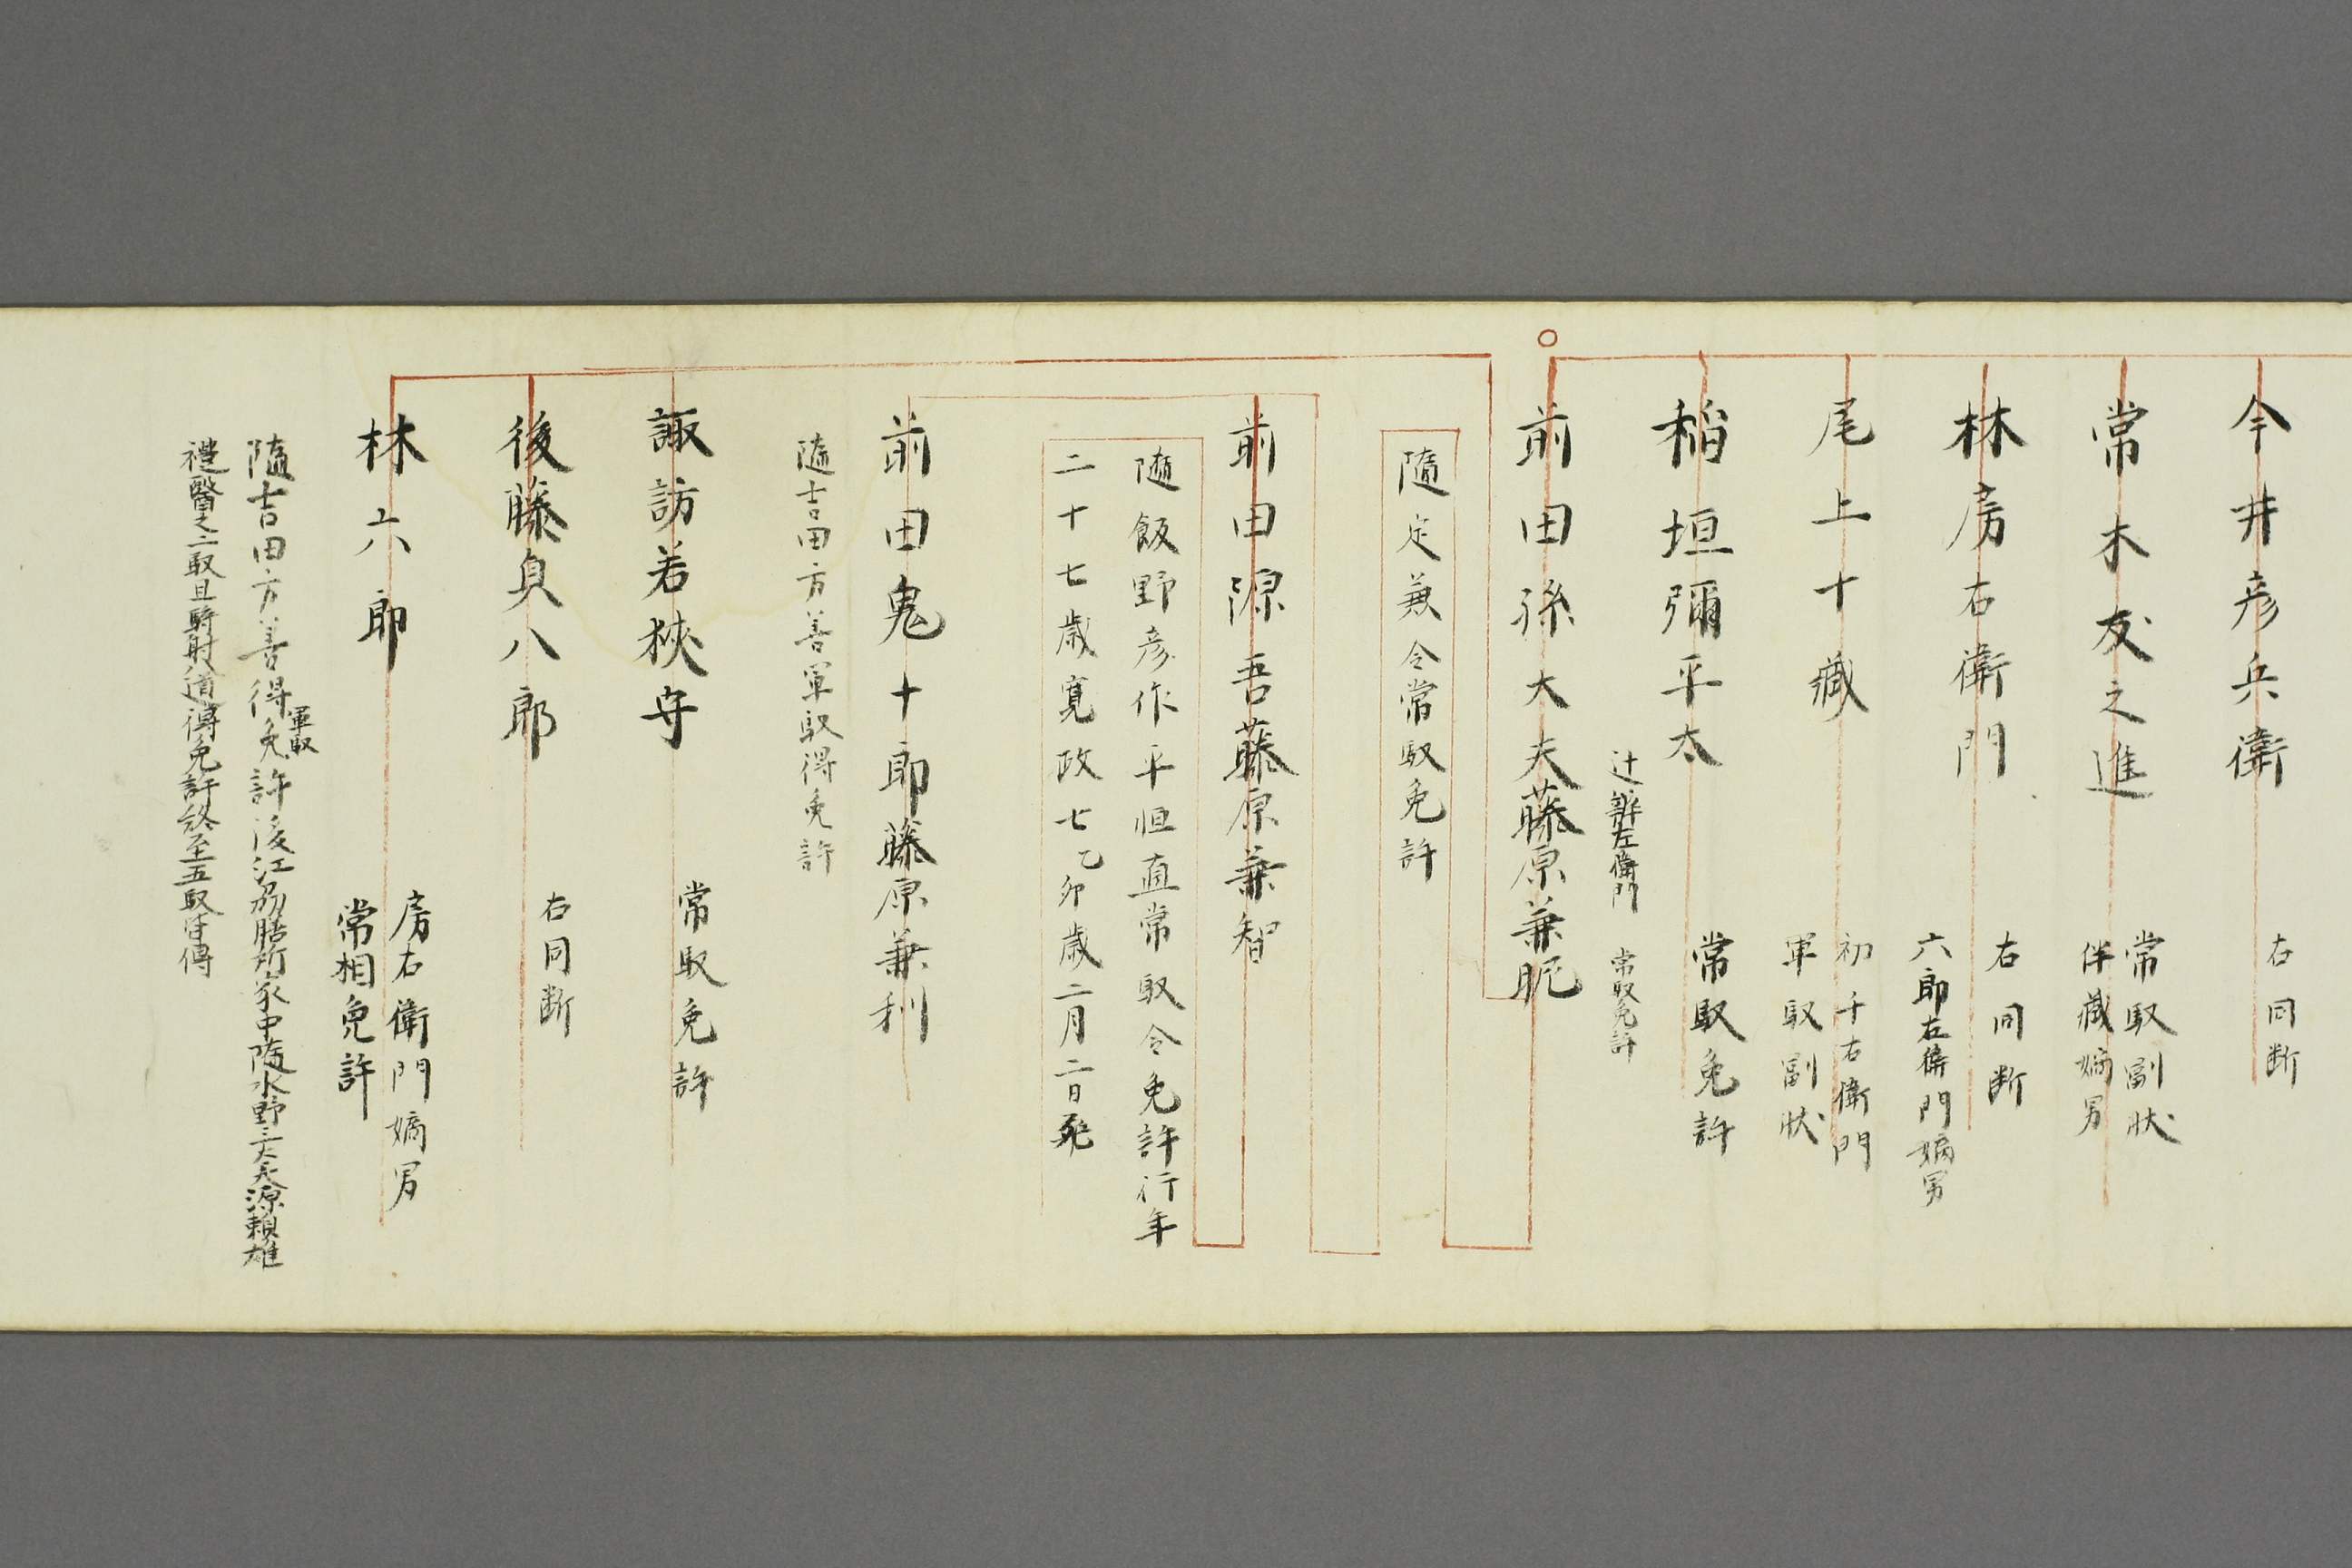 今井彦兵衛
右同断
常木友之進
常馭副状
伴藏嫡男
林房右衛門
右同断
六郎左衛門嫡男
尾上十藏
初千右衛門
軍馭副状
稲垣彌平太
常馭免許
辻辨左衛門
常馭免許
前田孫大夫藤原兼昵
隨定兼令常馭免許
前田源吾藤原兼智
隨飯野彦作平恒直常馭令免許行年
二十七歳寛政七乙卯歳二月二日死
前田鬼十郎藤原兼利
隨吉田方善軍馭得免許
諏訪若狹守
常馭免許
後藤貞八郎
右同断
林六郎
房右衛門嫡男
常相免許
隨吉田方善得軍馭免許後江州膳所家中隨水野三大夫源頼雄
禮醫之二馭且騎射道得免許終至五馭皆傳